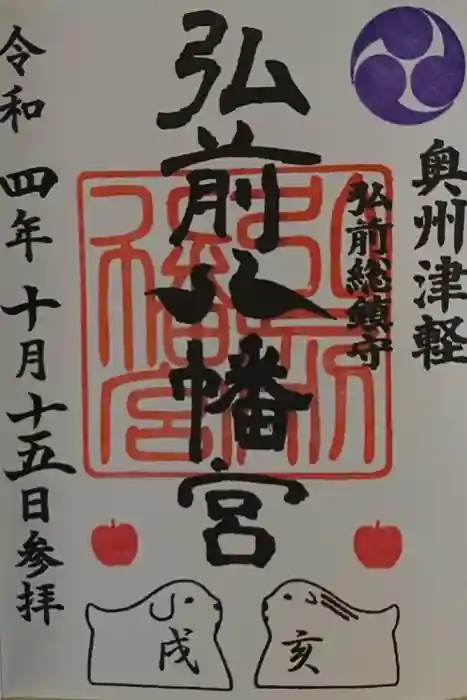 奥州津軽
弘前総鎮守
弘前八幡宮
令和四年十月十五日参拝
亥
戌